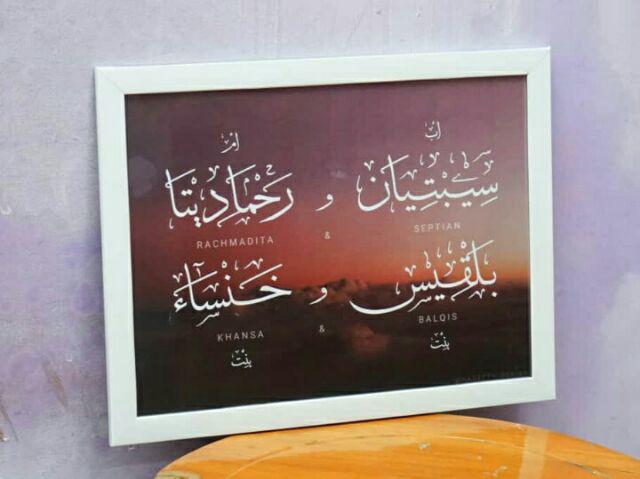 أب أم
سيبتيان و رحماديتا
SEPTIAN & RACHMADITA
بلقيس و خنساء
BALQIS & KHANSA
بنت بنت